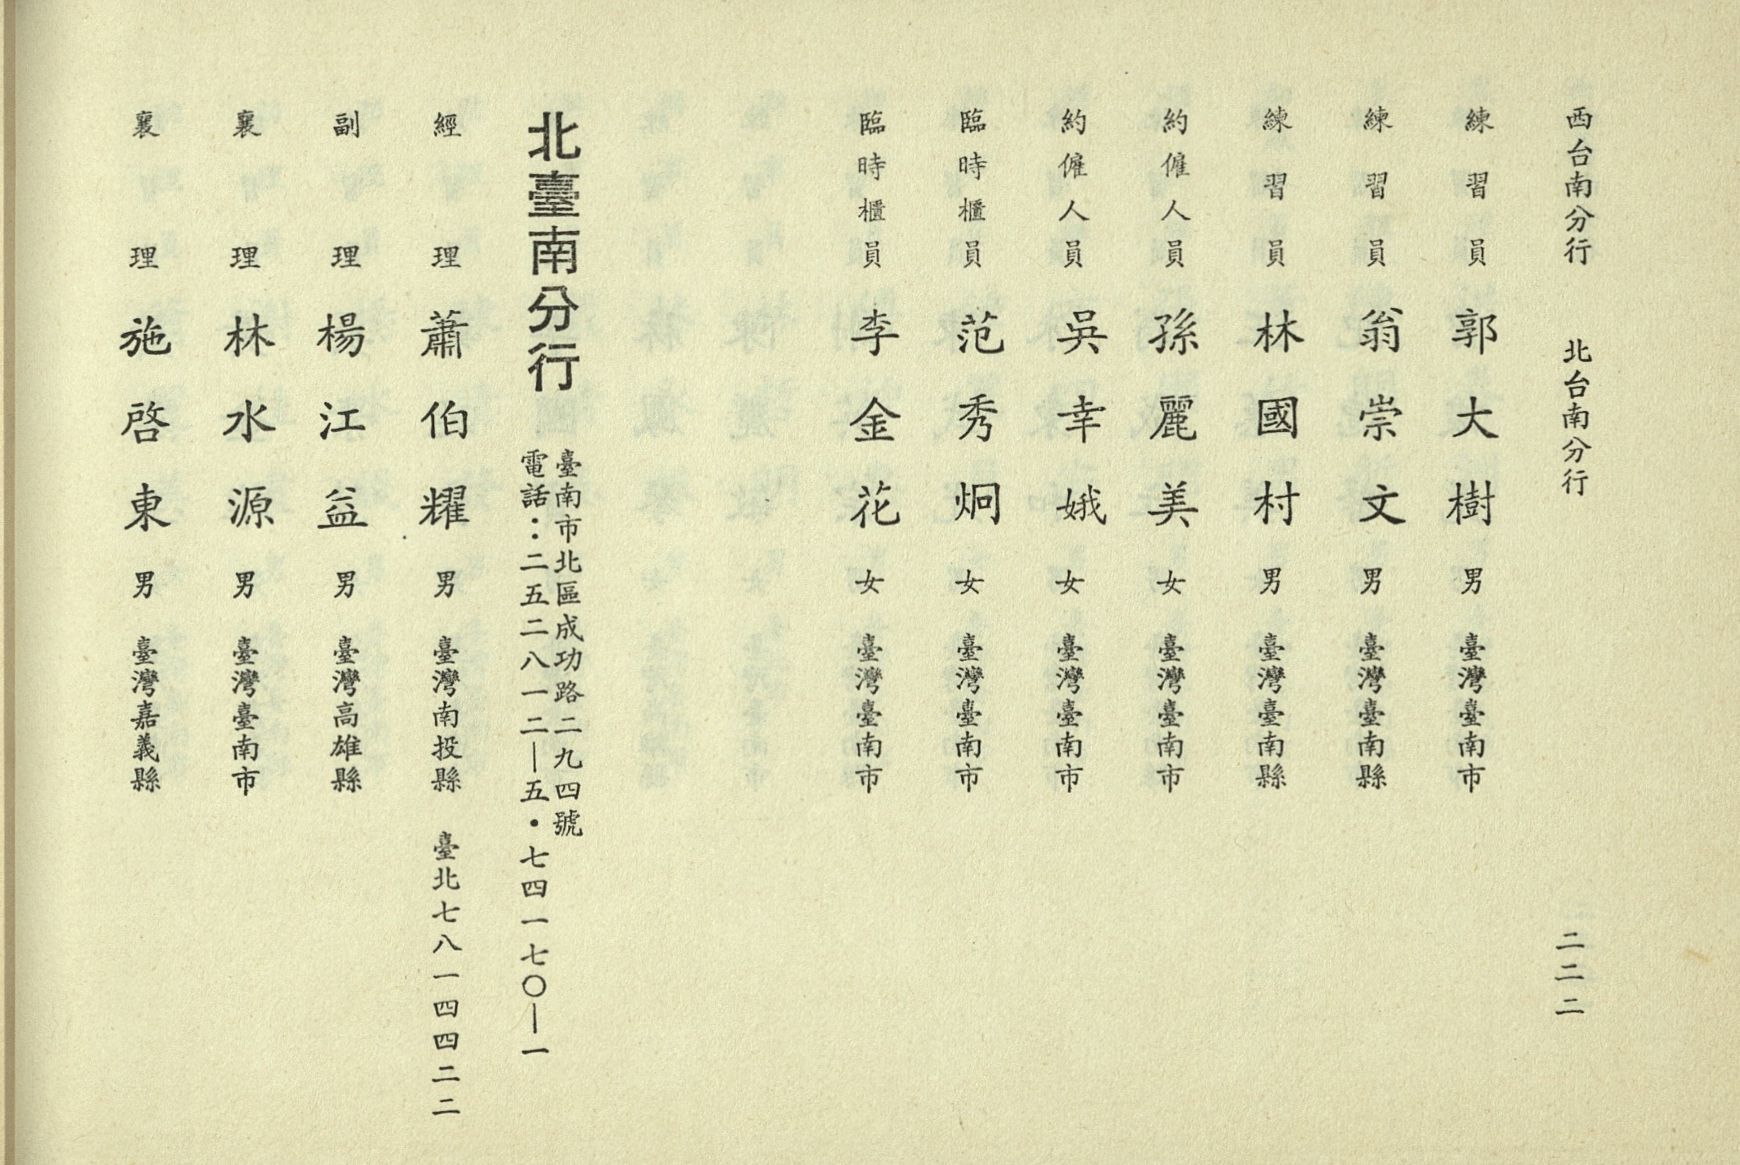 西台南分行 北台南分行 二二二
練習員 郭大樹 男 臺灣臺南市
練習員 翁崇文 男 臺灣臺南縣
練習員 林國村 男 臺灣臺南縣
約僱人員 孫麗美 女 臺灣臺南市
約僱人員 吳幸娥 女 臺灣臺南市
臨時櫃員 范秀炯 女 臺灣臺南市
臨時櫃員 李金花 女 臺灣臺南市
北臺南分行
臺南市北區成功路二九四號
電話：二五二八一二—五・七四一七〇—一
經理 蕭伯耀 男 臺灣南投縣 臺北七八一四四二二
副理 楊江益 男 臺灣高雄縣
襄理 林水源 男 臺灣臺南市
襄理 施啓東 男 臺灣嘉義縣